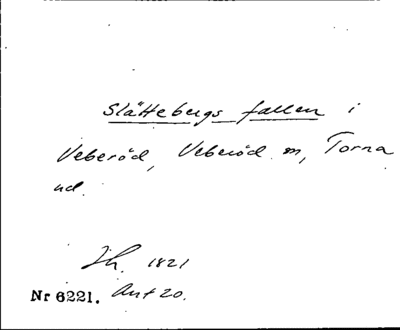 Slättebergs fallen i
Veberöd, Veberöd sn, Torna
hd.
Jh. 1821
Nr 6221. Ant 20.